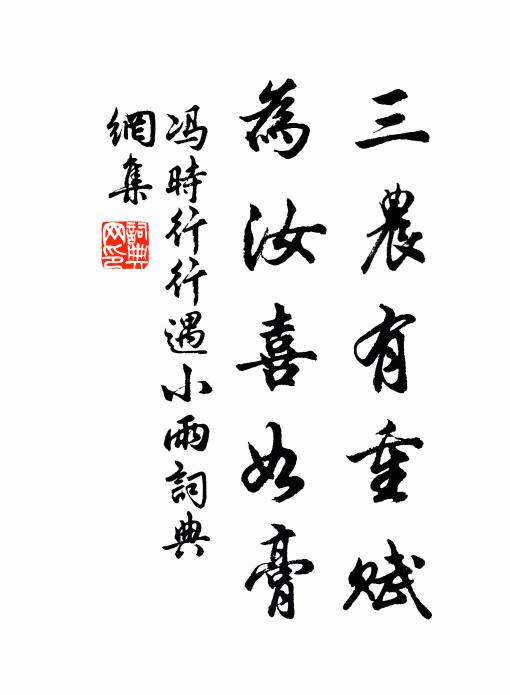 三農有重賦
為汝喜如膏
冯時行行遇小雨詞典
網集
詞典网印